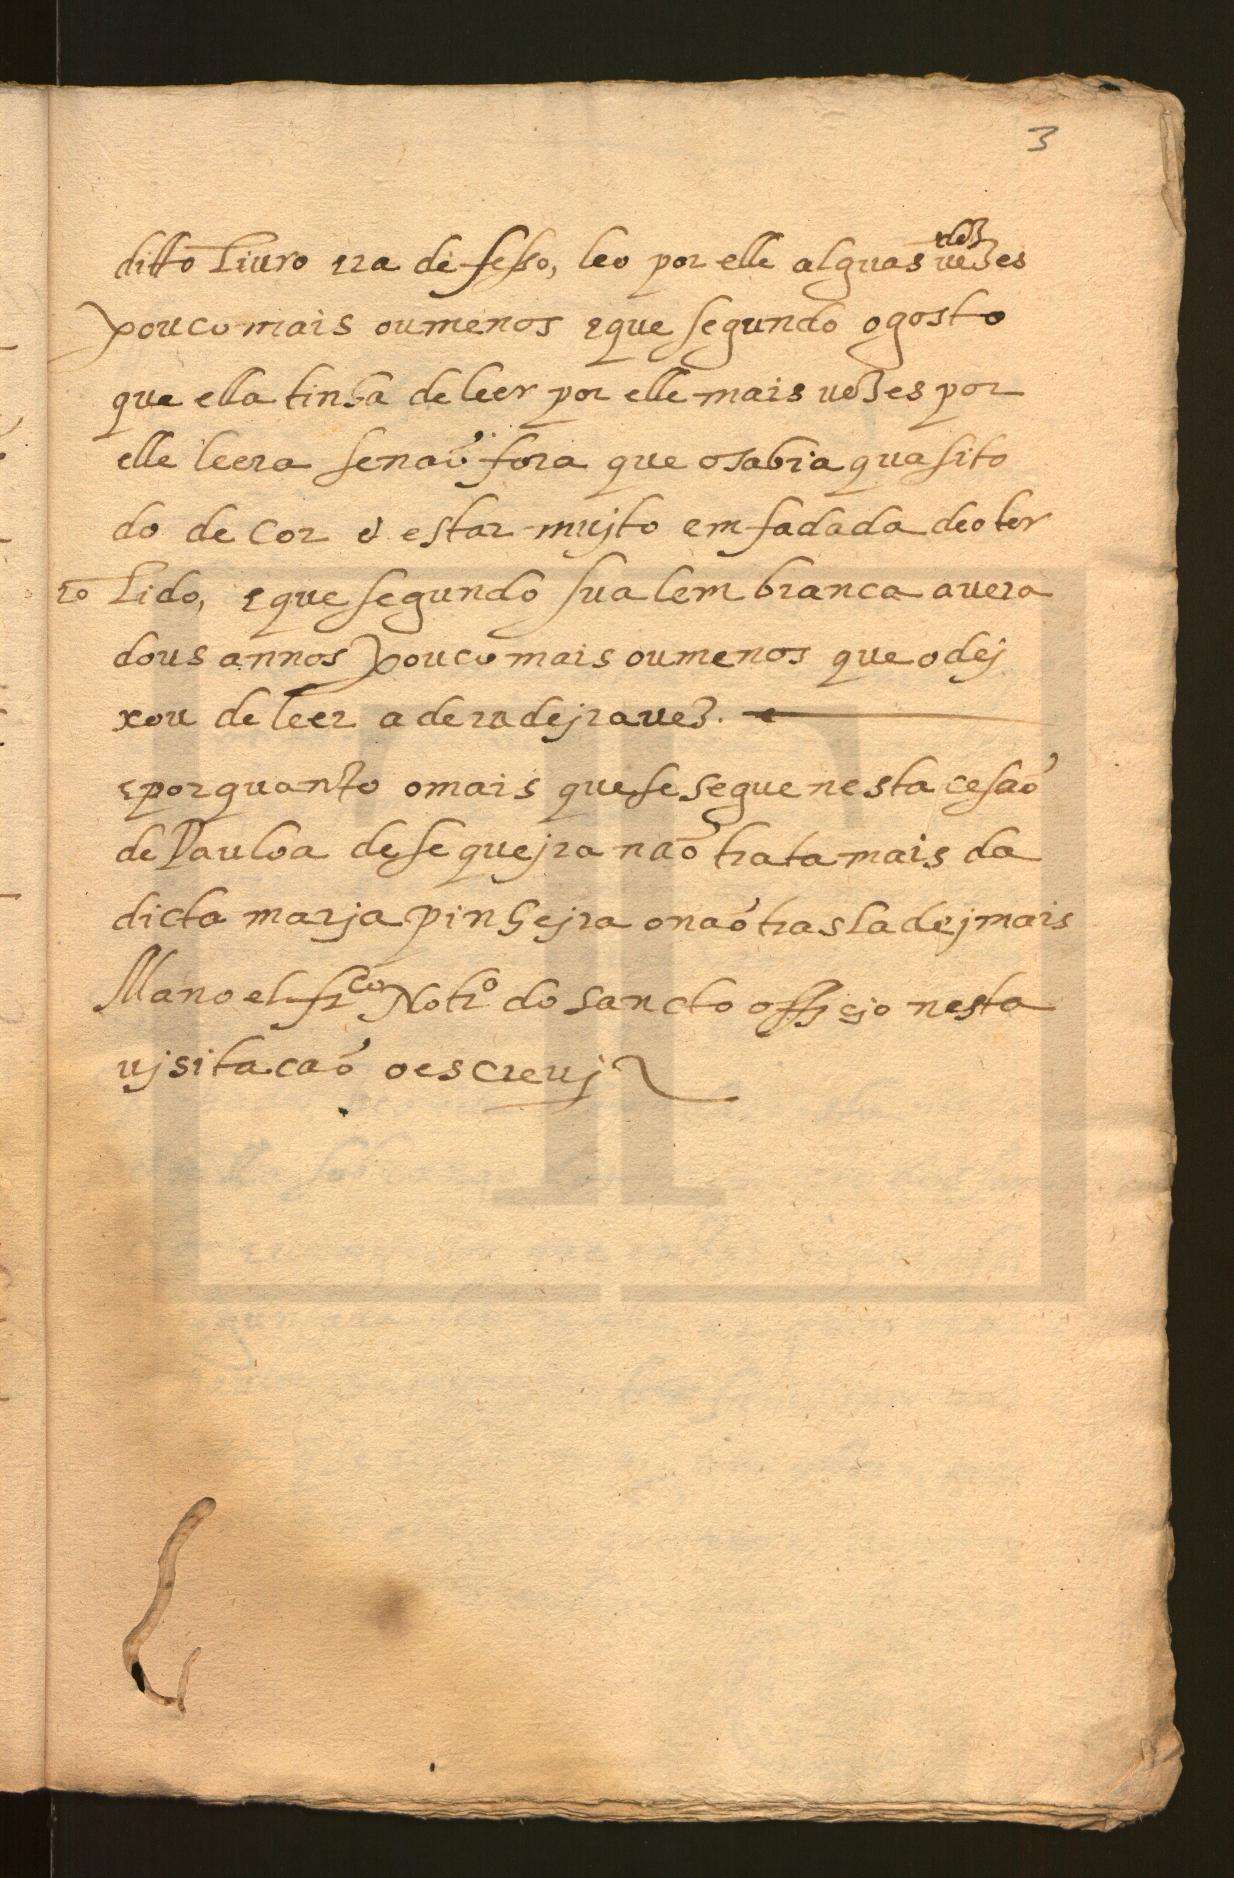 3
ditto Liuro era defesso, leo por elle alguas uezes
pouco mais ou menos e que segundo o gosto
que ella tinha de leer por elle mais uezes por
elle leera se naõ fora que o sabia quasi to
do de cor e estar mujto emfadada de o ter
Lido, e que segundo sua lembranca auera
dous annos pouco mais ou menos que o dej
xou de leer a deradejra uez.
e por quanto o mais que se segue nesta cesaõ
de Paula de sequejra naõ trata mais da
dicta marja pinhejra o naõ trasladej mais
Manoel frco Notro do sancto officjo nesta
ujsitacaõ o escreuj